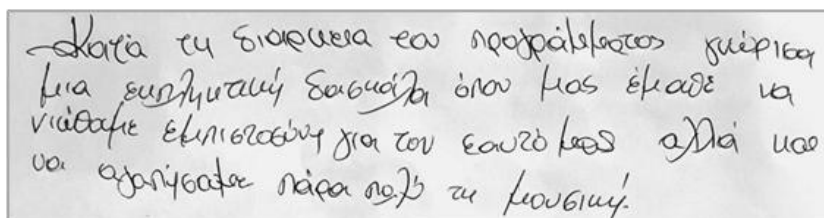 Κατά τη διαρκεια του προγράμματος γνώρισα
μια εκπληκτική δασκάλα όπου μας έμαθε να
νιώθαμε εμπιστοσύνη για τον εαυτό μας αλλά και
να αγαπήσαμε πάρα πολύ τη μουσική.